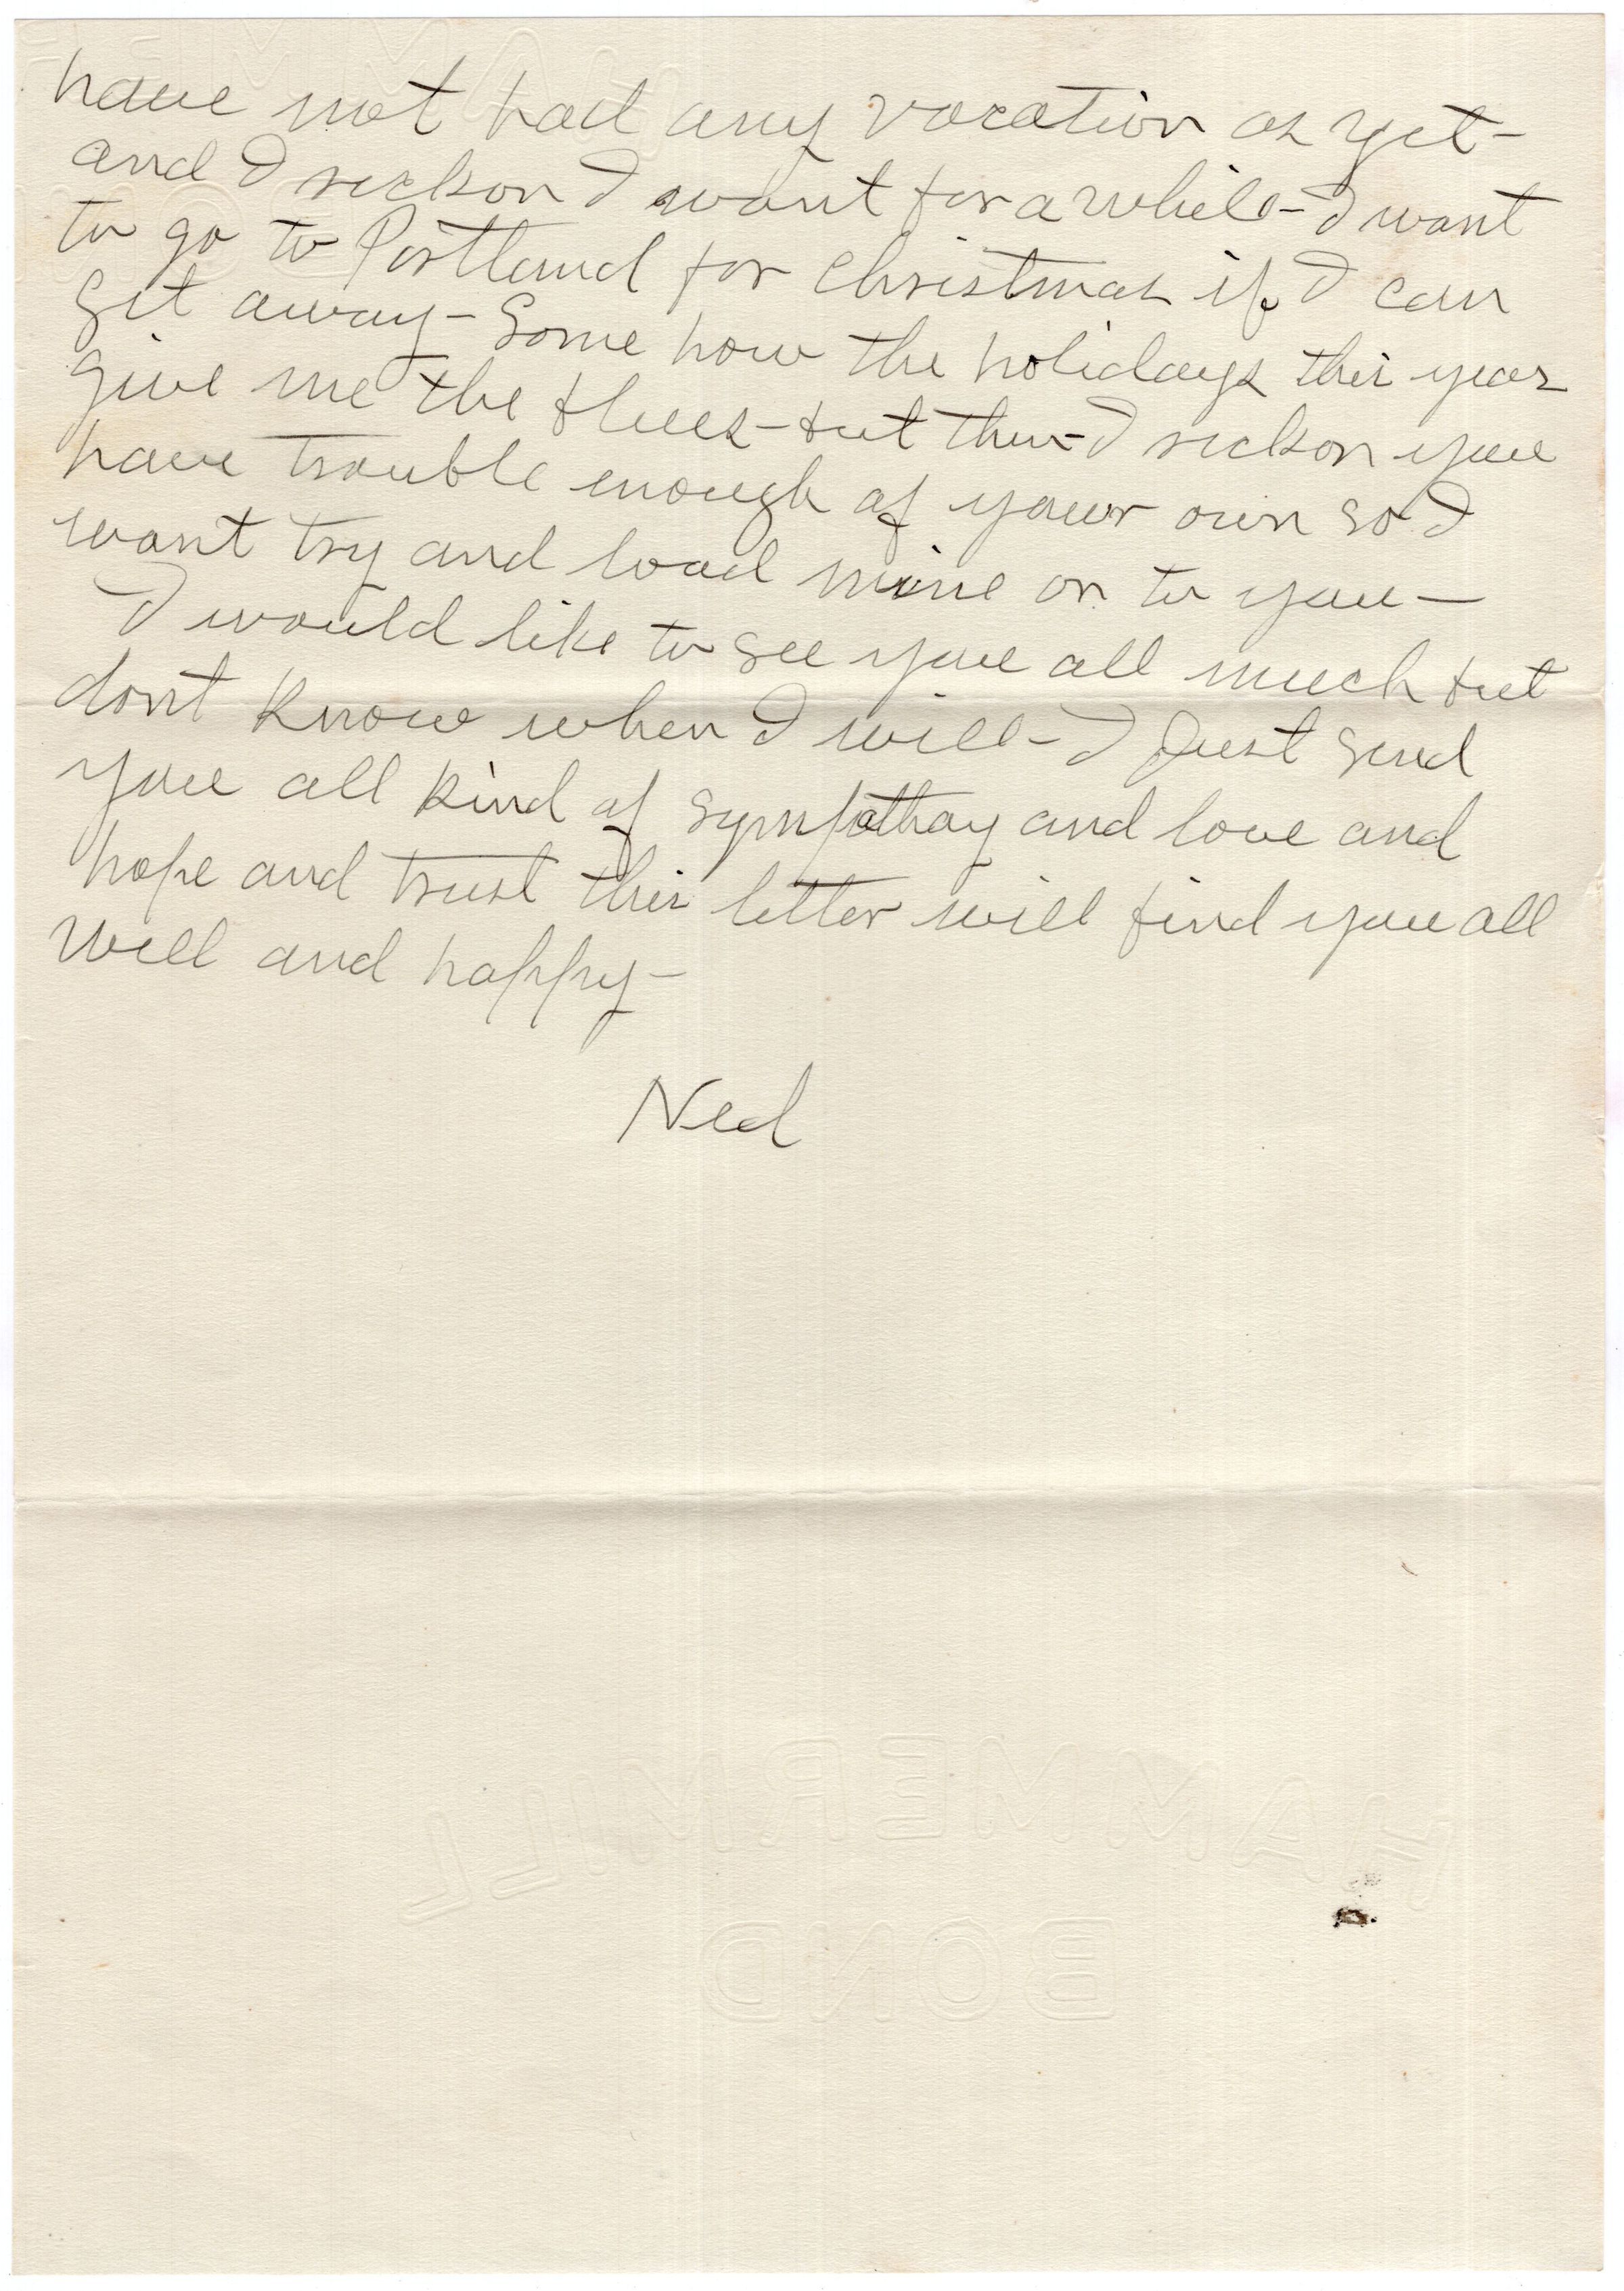 have not had any vacation as yet-
and I reckon I wont for a while-I want
to go to Portland for Christmas if I can
get away-Some how the holidays this year
give me the blues-but then-I reckon you
have trouble enough of your own so I
wont try and load mine on to you-
I would like to see you all much but
dont know when I will-I Just send
you all kind of sympathay and love and
hope and trust this letter will find you all
well and happy-
Ned
HAMMERMILL
BOND